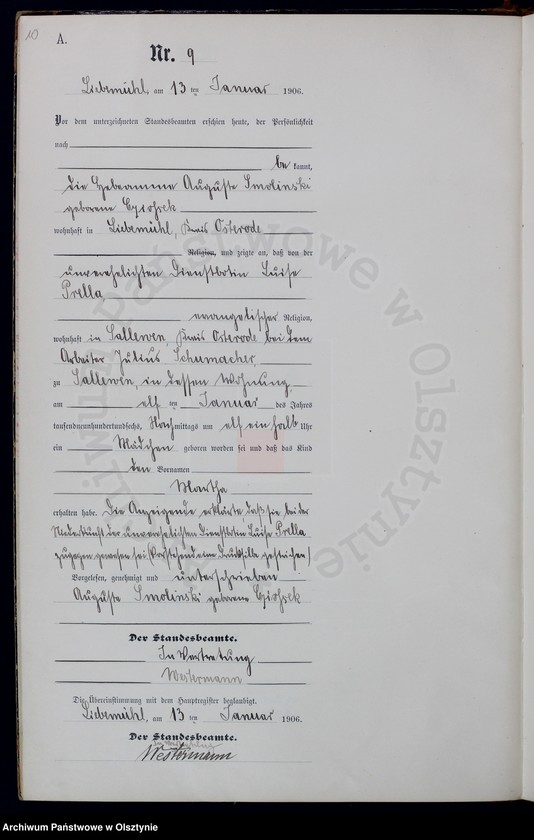 10
A.
Nr. 9
Liebemühl am 13 ten Januar 1906.
Vor dem unterzeichneten Standesbeamten erschien heute, der Persönlichkeit
nach
be kannt,
die Hebeamme Auguste Smolinski
geborene
wohnhaft in Liebemühl, Kreis Osterode
Religion, und zeigte an, daß von der
unverehelichten Dienstbotin Luise
Prella,
evangelischer Religion,
wohnhaft in Sallewen, Kreis Osterode bei dem
Arbeiter Julius Schumacher,
zu Sallewen, in dessen Wohnung,
am elf ten Januar des Jahres
tausendneunhundertundsechs, Nachmittags um elf ein halb Uhr
ein Mädchen geboren worden sei und daß das Kind
den Vornamen
Martha
erhalten habe. Die Anzeigende erklärte daß sie bei der
Niederkunft der unverehelichten Dienstbotin Luise Prella
zugegen gewesen sei (Vorstehend eine Drucksilbe gestrichen)
Vorgelesen, genehmigt und unterschrieben
Auguste Smolinski geborene
Der Standesbeamte.
In Vertretung
Westermann
Die Übereinstimmung mit dem Hauptregister beglaubigt.
Liebemühl, am 13 ten Januar 1906.
Der Standesbeamte.
In Vertretung
Westermann
Archiwum Państwowe w Olsztynie